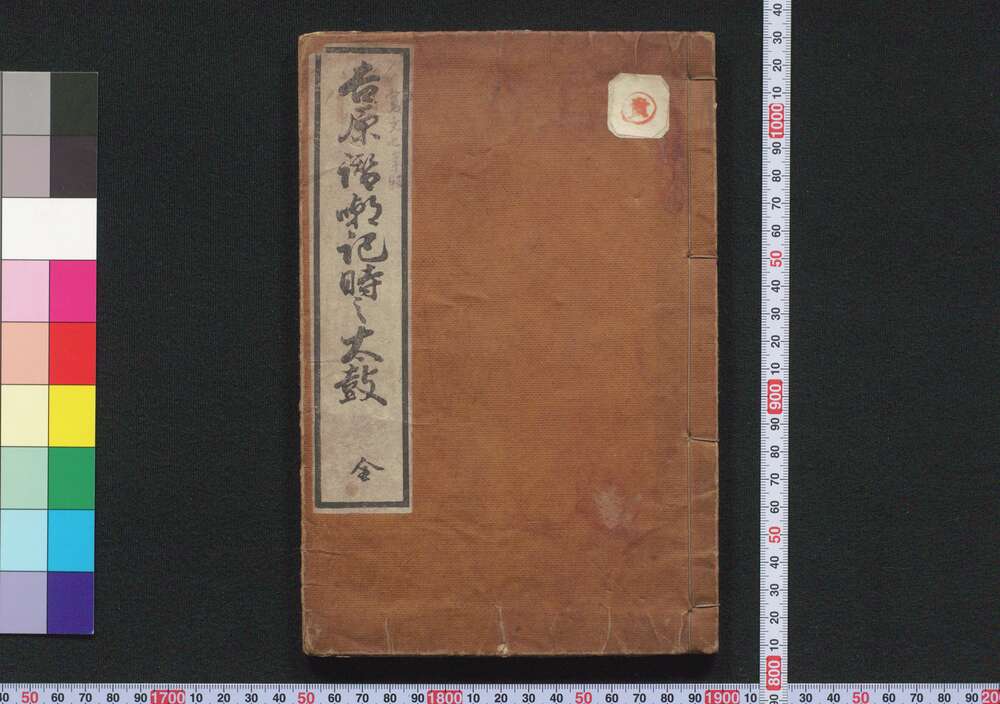 吉原諧嘲記時之太鼓
全
40
30
20
10
1000
90
80
70
60
50
40
30
20
10
900
90
80
70
60
50
40
30
20
10
800
90
40 50 60 70 80 90 1700 10 20 30 40 50 60 70 80 90 1800 10 20 30 40 50 60 70 80 90 1900 10 30 40 50 60 70 80 90 20